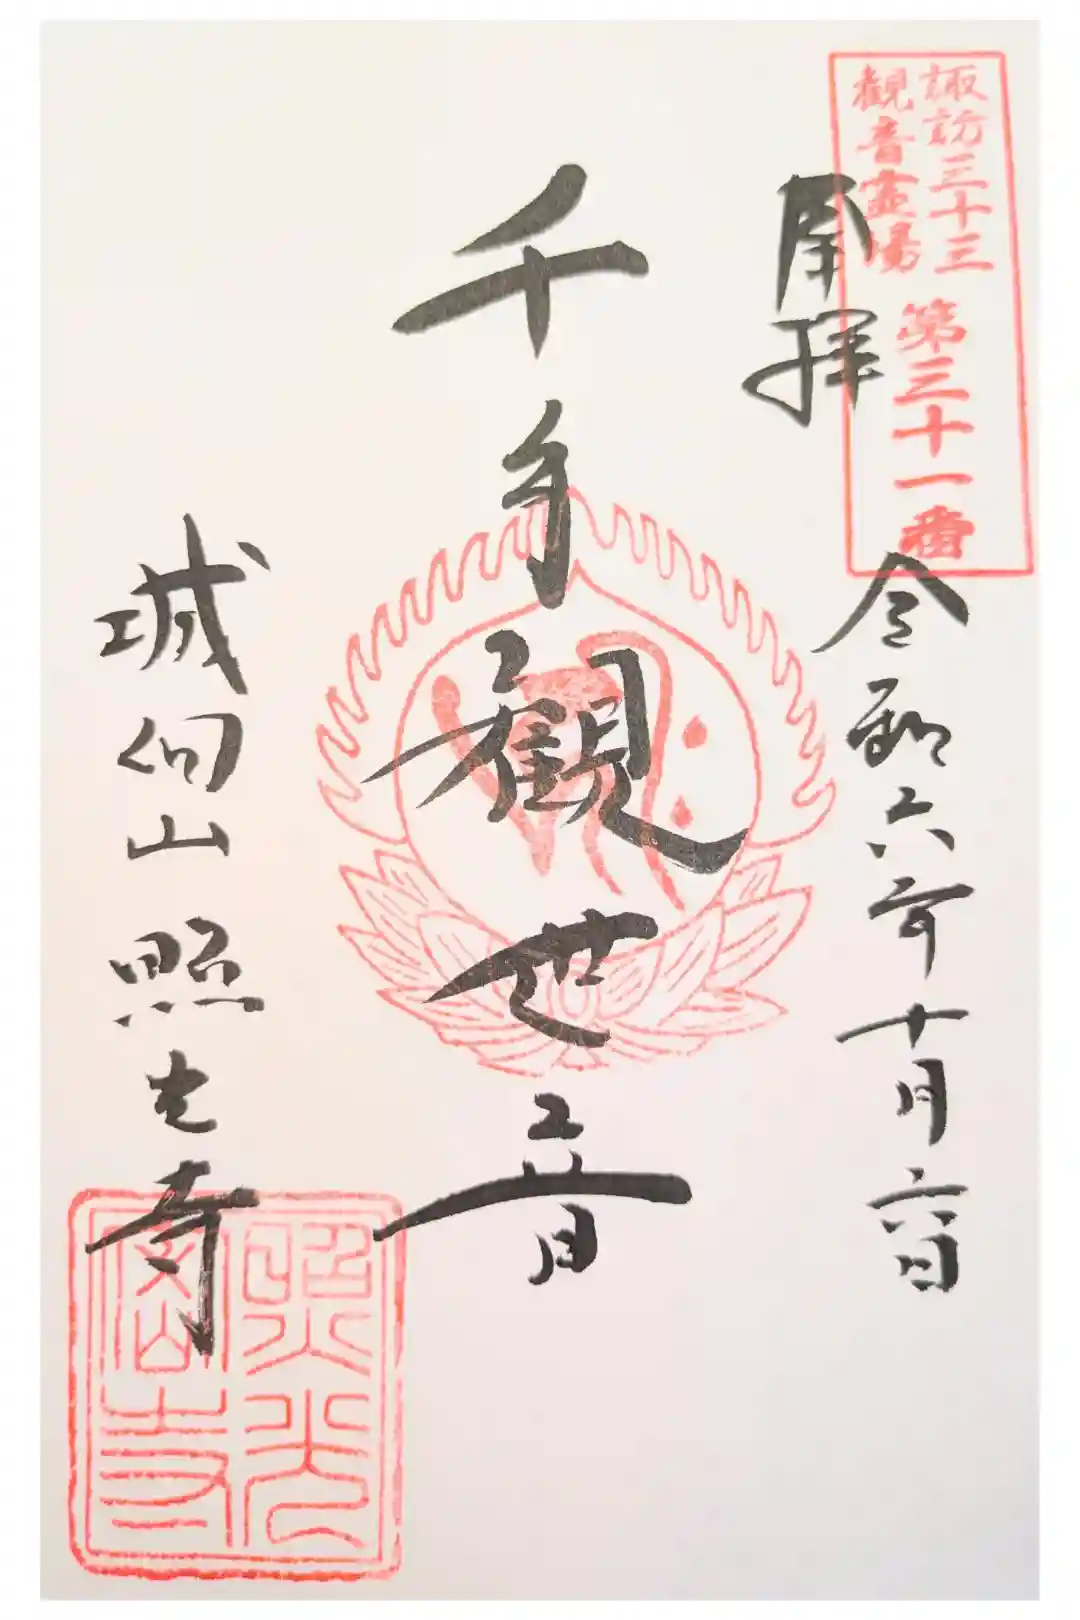 諏訪三十三
観音霊場
第三十一番
奉拝
令和六年十月六日
千手観世音
城向山照光寺
照光
密寺